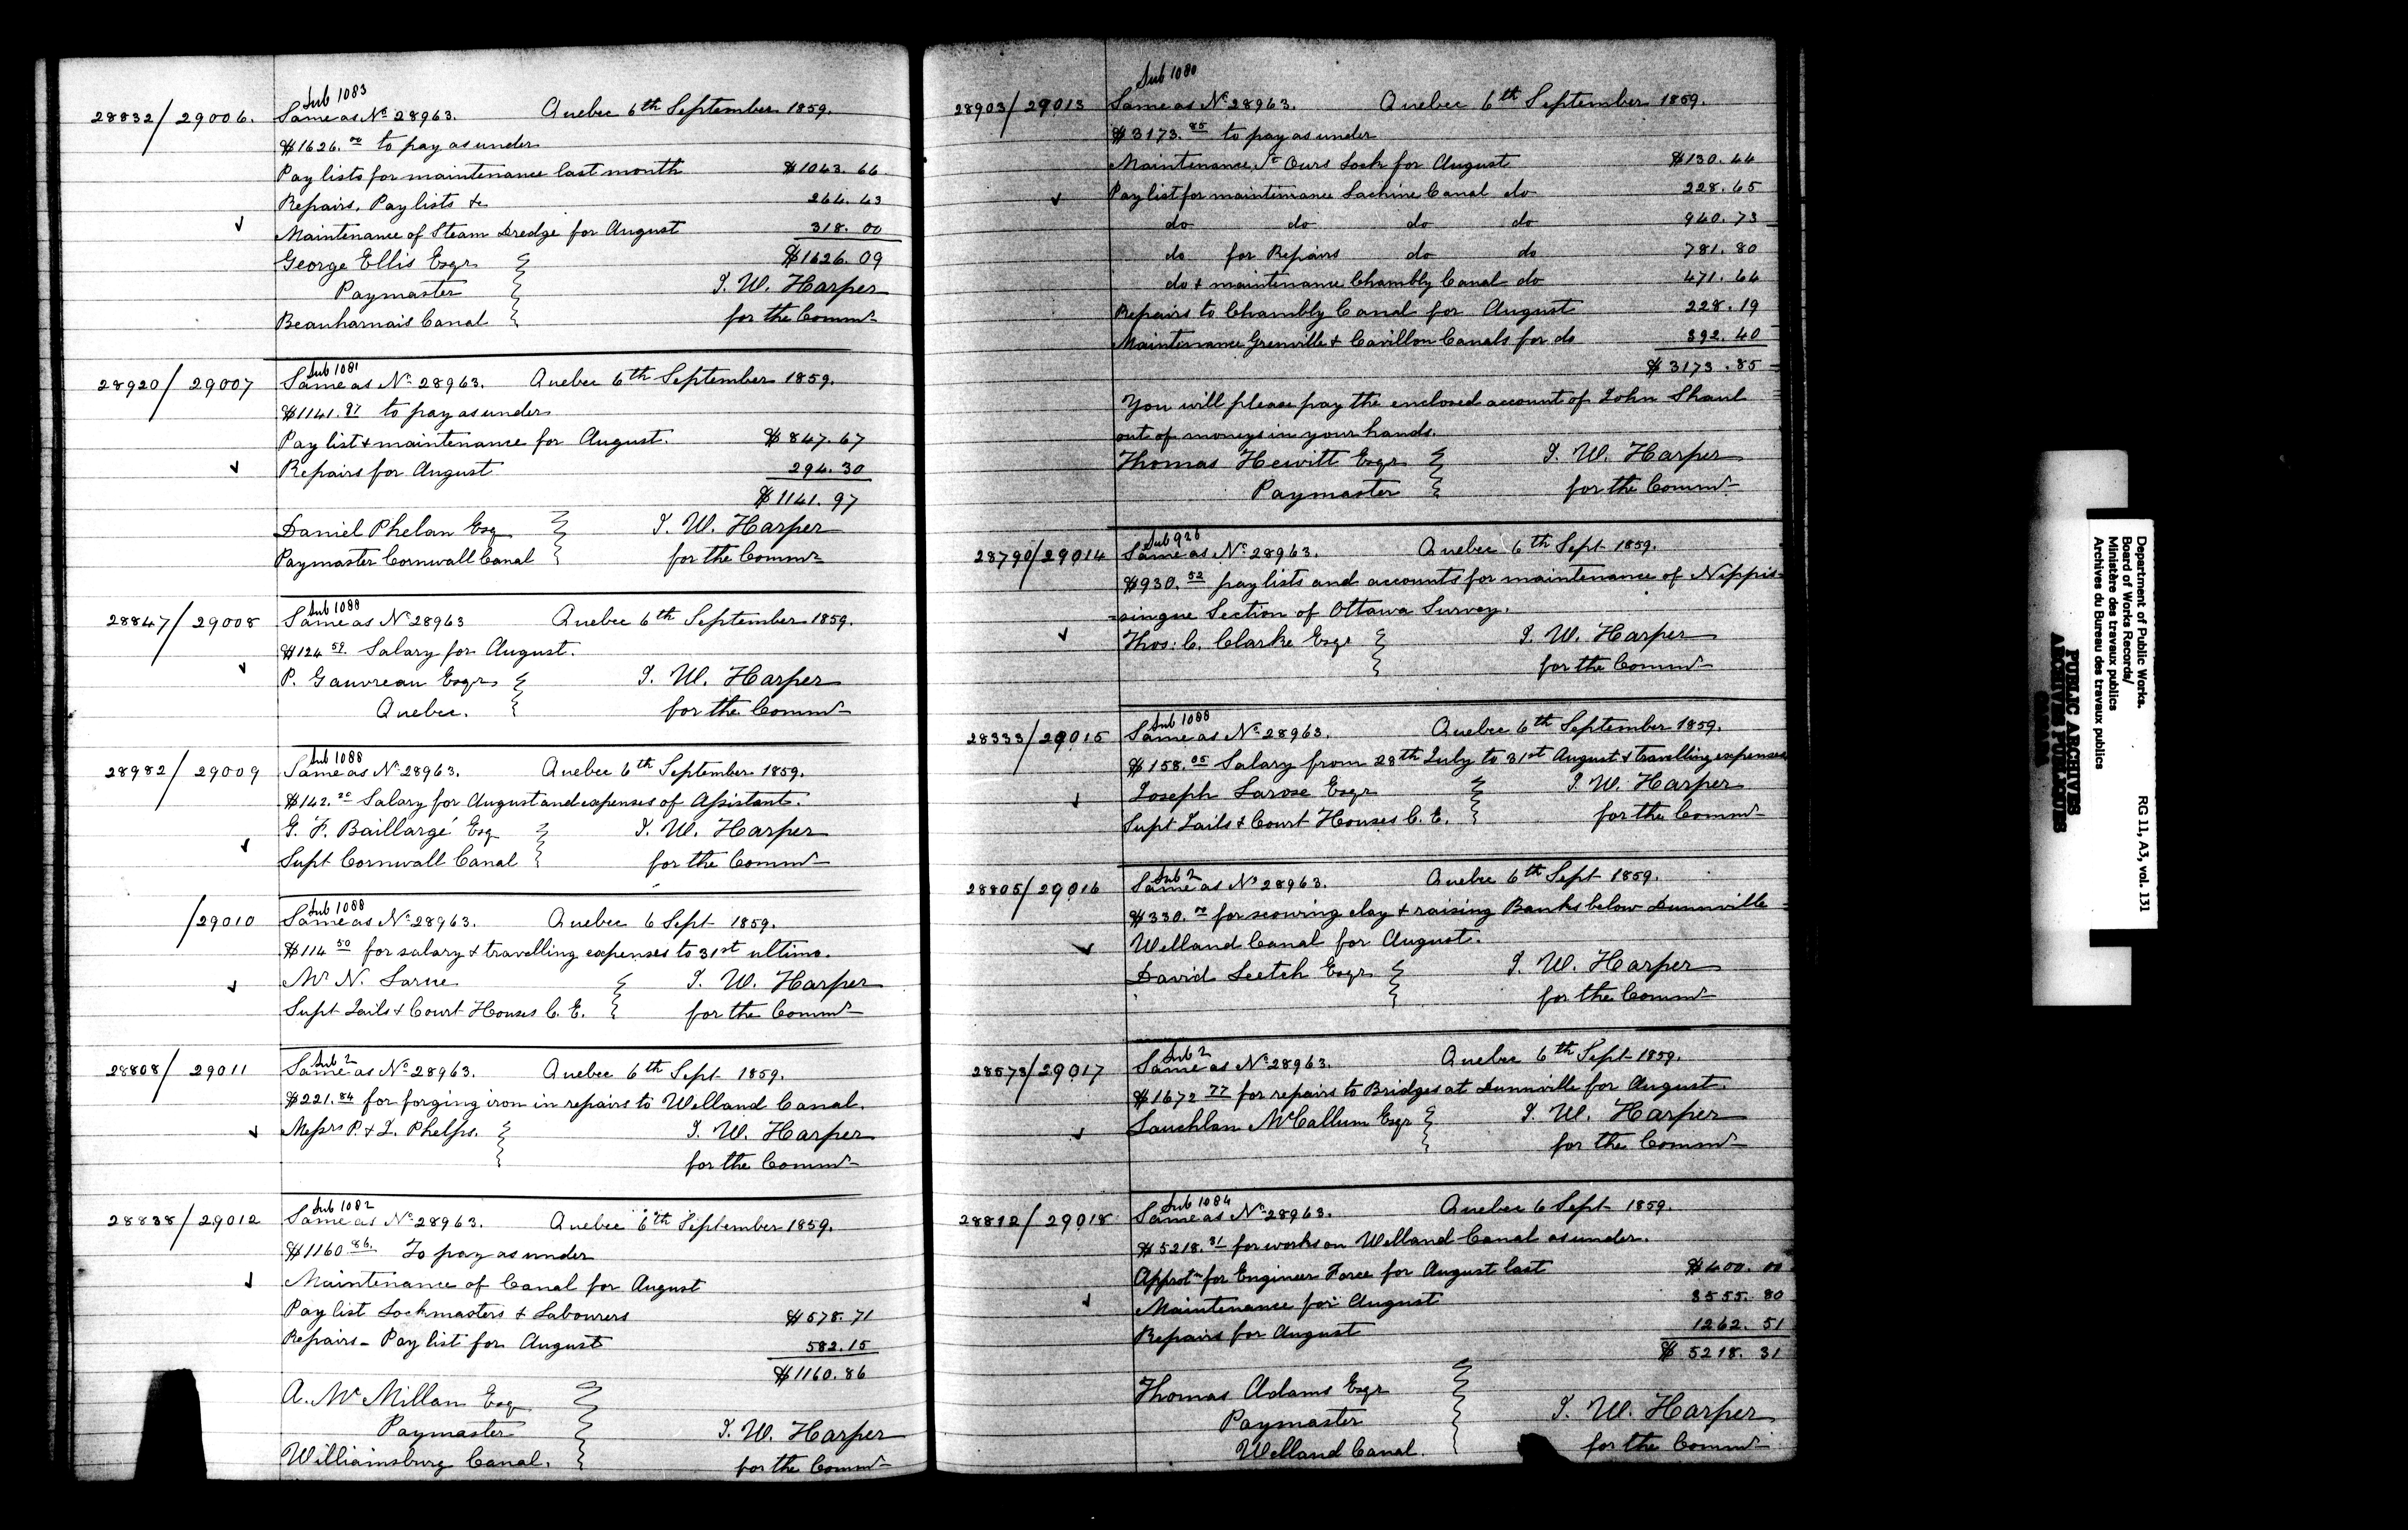 Sub 1083
28832/29006. Same as No 28963. Quebec 6th September 1859.
$1626.09 to pay as under
Pay lists for maintenance last month $1043.66
Repairs, Pay lists &c 264.43
Maintenance of Steam Dredge for August 318.00
George Ellis Esqr $1626.09
Paymaster T. W. Harper
Beauharnais Canal for the Commrs
Sub 1081
28920/29007 Same as No 28963. Quebec 6th September 1859.
$1141.97 to pay as under
Pay list & maintenance for August. $847.67
Repairs for August 294.30
$1141.97
Daniel Phelan Esq T. W. Harper
Paymaster Cornwall Canal for the Commrs
Sub 1088
28847/29008 Same as No 28963 Quebec 6th September 1859.
$124.59 Salary for August.
P. Gauvreau Esqr T. W. Harper
Quebec. for the Commrs
Sub 1088
28982/29009 Same as No 28963. Quebec 6th September 1859.
$142.20 Salary for August and expenses of Assistant.
G. F. Baillargé Esq T. W. Harper
Supt Cornwall Canal for the Commrs
Sub 1088
/29010 Same as No 28963. Quebec 6 Sept 1859.
$114.50 for salary & travelling expenses to 31st ultimo.
Mr N. Larue T. W. Harper
Supt Jails & Court Houses C. E. for the Commrs
Sub 2
28808/29011 Same as No 28963. Quebec 6th Sept 1859.
$221.84 for forging iron in repairs to Welland Canal.
Messrs P. & L. Phelps. T. W. Harper
for the Commrs
Sub 1082
28838/29012 Same as No 28963. Quebec 6th September 1859.
$1160.86. To pay as under
Maintenance of Canal for August
Pay list Lockmasters & Labourers $578.71
Repairs - Pay list for August 582.15
$1160.86
A. McMillan Esq
Paymaster T. W. Harper
Williamsburg Canal. for the Commrs
Sub 1080
28903/29013 Same as No 28963. Quebec 6th September 1859.
$3173.85 to pay as under
Maintenance St Ours Lock for August $130.44
Pay list for maintenance Lachine Canal do 228.65
do do do do 940.73
do for Repairs do do 781.80
do & maintenance Chambly Canal do 471.64
Repairs to Chambly Canal for August 228.19
Maintenance Grenville & Carillon Canals for do 392.40
$3173.85
You will please pay the enclosed account of John Shaul
out of moneys in your hands.
Thomas Hewitt Esqr T. W. Harper
Paymaster for the Commrs
Sub 926
28790/29014 Same as No 28963. Quebec 6th Sept 1859.
$930.52 pay lists and accounts for maintenance of Nippis-
-singue Section of Ottawa Survey.
Thos: C. Clarke Esqr T. W. Harper
for the Commrs
Sub 1088
28333/29015 Same as No 28963. Quebec 6th September 1859.
$158.05 Salary from 28th July to 31st August & travelling expenses
Joseph Larose Esqr T. W. Harper
Supt Jails & Court Houses C. E. for the Commrs
Sub 2
28805/29016 Same as No 28963. Quebec 6th Sept 1859.
$330.00 for scouring clay & raising Banks below Dunnville
Welland Canal for August.
David Leetch Esqr T. W. Harper
for the Commrs
Sub 2
28573/29017 Same as No 28963. Quebec 6th Sept 1859.
$1672.77 for repairs to Bridges at Dunnville for August.
Lauchlan McCallum Esqr T. W. Harper
for the Commrs
Sub 1084
28812/29018 Same as No 28963. Quebec 6 Sept 1859.
$5218.31 for works on Welland Canal as under.
Approtn for Engineer Force for August last $400.00
Maintenance for August 3555.80
Repairs for August 1262.51
$5218.31
Thomas Adams Esqr
Paymaster T. W. Harper
Welland Canal. for the Commrs
Department of Public Works.
Board of Works Records/
Ministère des travaux publics
Archives du Bureau des travaux publics
RG 11, A3, vol. 131
PUBLIC ARCHIVES
ARCHIVES PUBLIQUES
CANADA